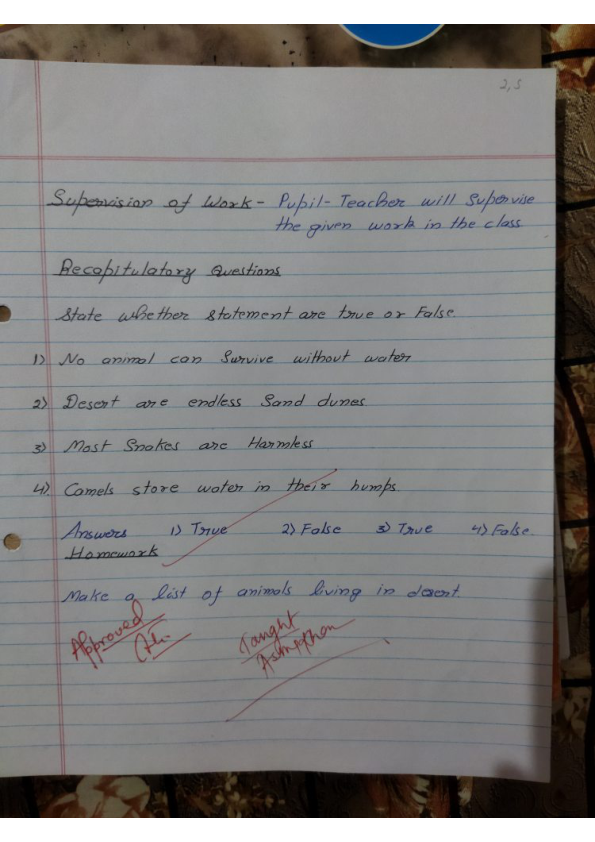 2,5
Supervision of Work - Pupil-Teacher will Supervise
the given work in the class
Recapitulatory Questions
State whether statement are true or False.
1) No animal can Survive without water
2) Desert are endless Sand dunes
3) Most Snakes are Harmless
4) Camels store water in their humps.
Answers 1) True 2) False 3) True 4) False.
Homework
Make a list of animals living in desert.
Approved
Taught